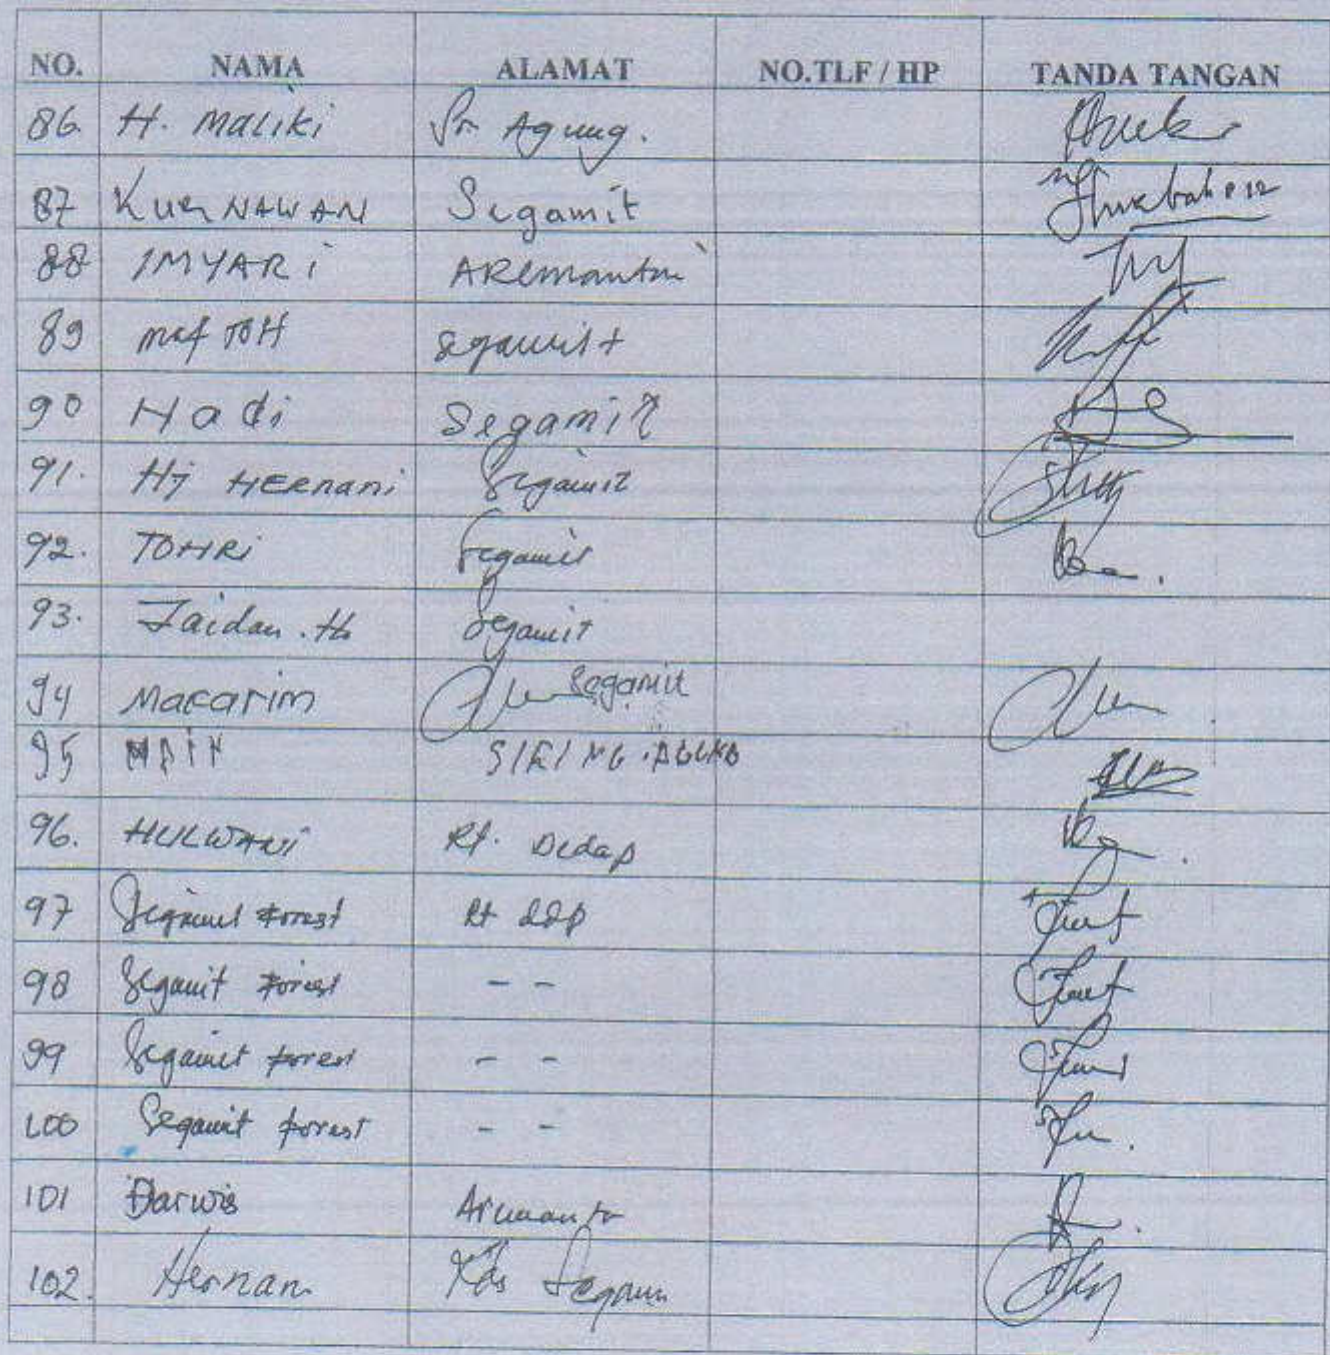 NO. NAMA ALAMAT NO.TLF / HP TANDA TANGAN
86. H. Maliki Agung.
87 KURNAWAN Segamit
88 IMYARI AREmantai
89 Maf TOH Segamit
90 Hadi Segamit
91. Hj HERnani Segamit
92. TOHRi Segamit
93. Zaidan . Segamit
94 Macarim Segamit
95
96. HULWANi Rt. Dedap
97 Segamit Forest Rt ddp
98 Segamit Forest - -
99 Segamit Forest - -
100 Segamit Forest - -
101 Darwis
102. Hernan Kds Segam